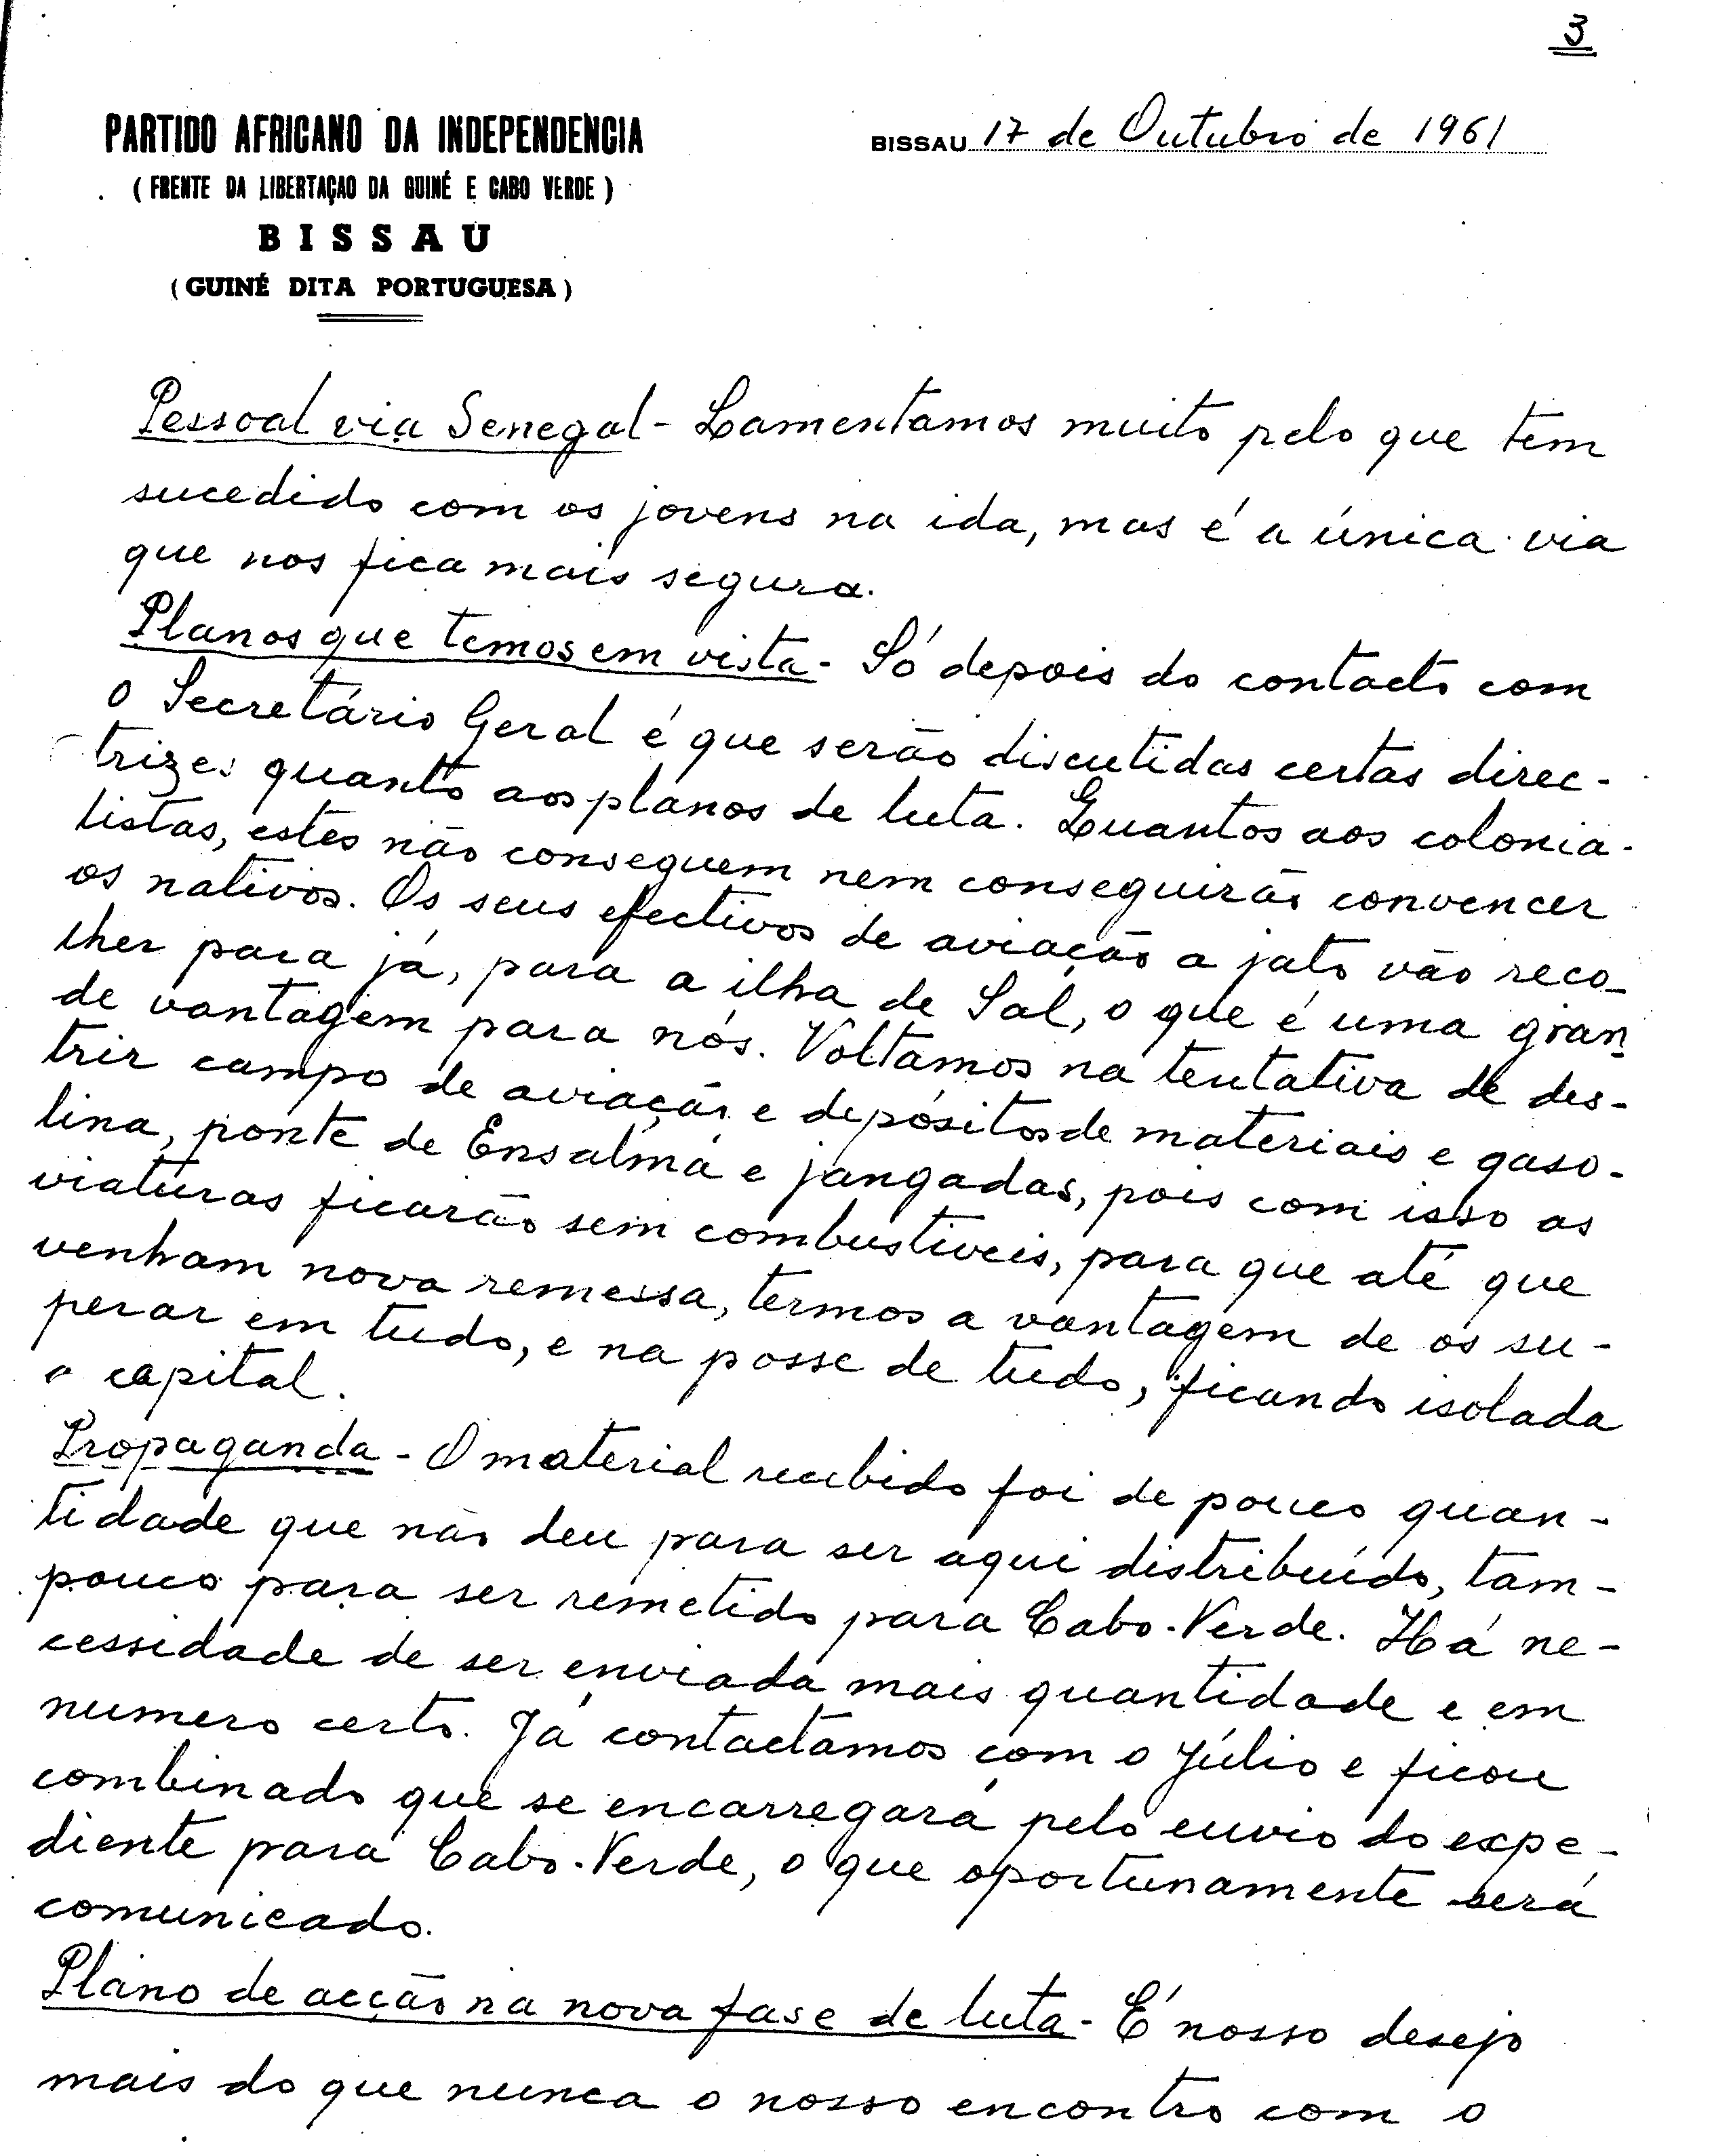 3
PARTIDO AFRICANO DA INDEPENDENCIA
BISSAU 17 de Outubro de 1961
( FRENTE DA LIBERTAÇAO DA GUINÉ E CABO VERDE )
BISSAU
( GUINÉ DITA PORTUGUESA )
Pessoal via Senegal - Lamentamos muito pelo que tem
sucedido com os jovens na ida, mas é a única via
que nos fica mais segura.
Planos que temos em vista - Só depois do contacto com
o Secretário Geral é que serão discutidas certas direc-
trizes quanto aos planos de luta. Quantos aos colonia-
listas, estes não conseguem nem conseguirão convencer
os nativos. Os seus efectivos de aviação a jato vão reco-
lher para já, para a ilha de Sal, o que é uma gran
de vantagem para nós. Voltamos na tentativa de des-
trir campo de aviação e depósitos de materiais e gaso-
lina, ponte de Ensalmá e jangadas, pois com isso as
viaturas ficarão sem combustíveis, para que até que
venham nova remessa, termos a vantagem de os su-
perar em tudo, e na posse de tudo, ficando isolada
a capital.
Propaganda - O material recebido foi de pouco quan-
tidade que não deu para ser aqui distribuído, tam-
pouco para ser remetido para Cabo-Verde. Há ne-
cessidade de ser enviada mais quantidade e em
numero certo. Já contactamos com o Júlio e ficou
combinado que se encarregará pelo envio do expe-
diente para Cabo-Verde, o que oportunamente será
comunicado.
Plano de acção na nova fase de luta - É nosso desejo
mais do que nunca o nosso encontro com o